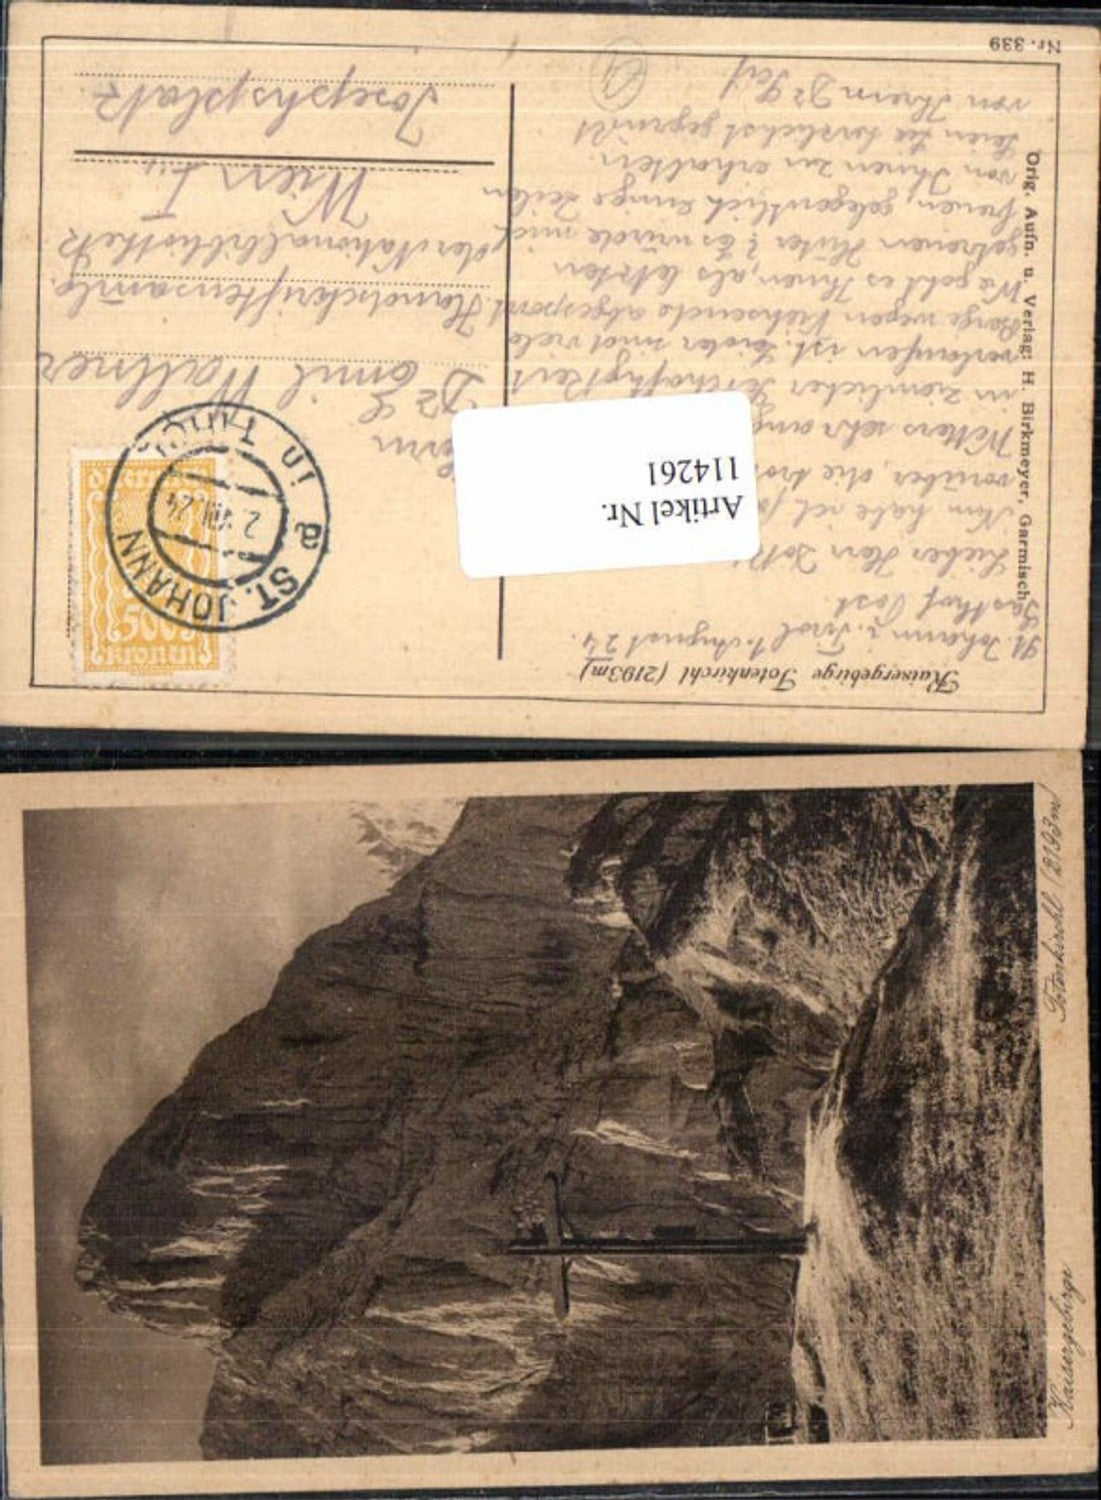 Kaisergebirge Totenkirchl (2193m)
St. Johann i. Tirol 1. August 24.
Gasthof Post.
Lieber Herr
Nun habe ich
vorüber, die
Wetters sehr
in ziemlicher
verlaufen ist. Leider sind viele
Berge wegen Viehseuche abgesperrt.
Wie geht es Ihnen, als letzten
getreuen Hüter? Es würde mich
freuen, gelegentlich einige Zeilen
von Ihnen zu erhalten.
Seien Sie herzlichst gegrüsst
von Ihrem Dr
Orig. Aufn. u. Verlag: H. Birkmeyer, Garmisch
Nr. 339
500
KRONEN
ST. JOHANN IN TIROL
2.VIII.24
a
Dr Emil Wallner
Handschriftensamlg.
der Nationalbibliothek
Wien I
Josephsplatz
Artikel Nr.
114261
Kaisergebirge Totenkirchl (2193m)